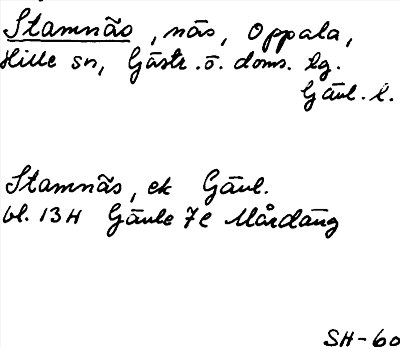 Stamnäs, näs, Oppala,
Hille sn, Gästr. ö. doms. lg.
Gävl. l.
Stamnäs, ek Gävl.
bl. 13H Gävle 7e Mårdäng
SH-60